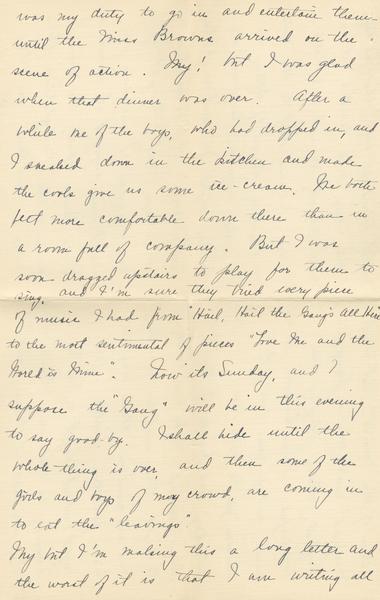 was my duty to go in and entertain them
until the Miss Browns arrived on the
scene of action. My! but I was glad
when that dinner was over. After a
while one of the boys, who had dropped in, and
I sneaked down in the kitchen and made
the cooks give us some ice-cream. We both
felt more comfortable down there than in
a room full of company. But I was
soon dragged upstairs to play for them to
sing, and I'm sure they tried every piece
of music I had from "Hail, Hail the Gang's All Here
to the most sentimental of pieces "Love Me and the
World is Mine". Now its Sunday, and I
suppose the "Gang" will be in this evening
to say good-by. I shall hide until the
whole thing is over and then some of the
girls and boys of my crowd, are coming in
to eat the "leavings".
My but I'm making this a long letter and
the worst of it is that I am writing all